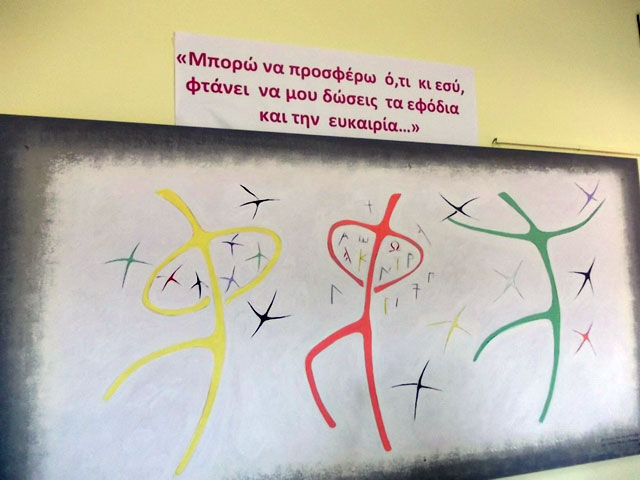 «Μπορώ να προσφέρω ό,τι κι εσύ,
φτάνει να μου δώσεις τα εφόδια
και την ευκαιρία...»